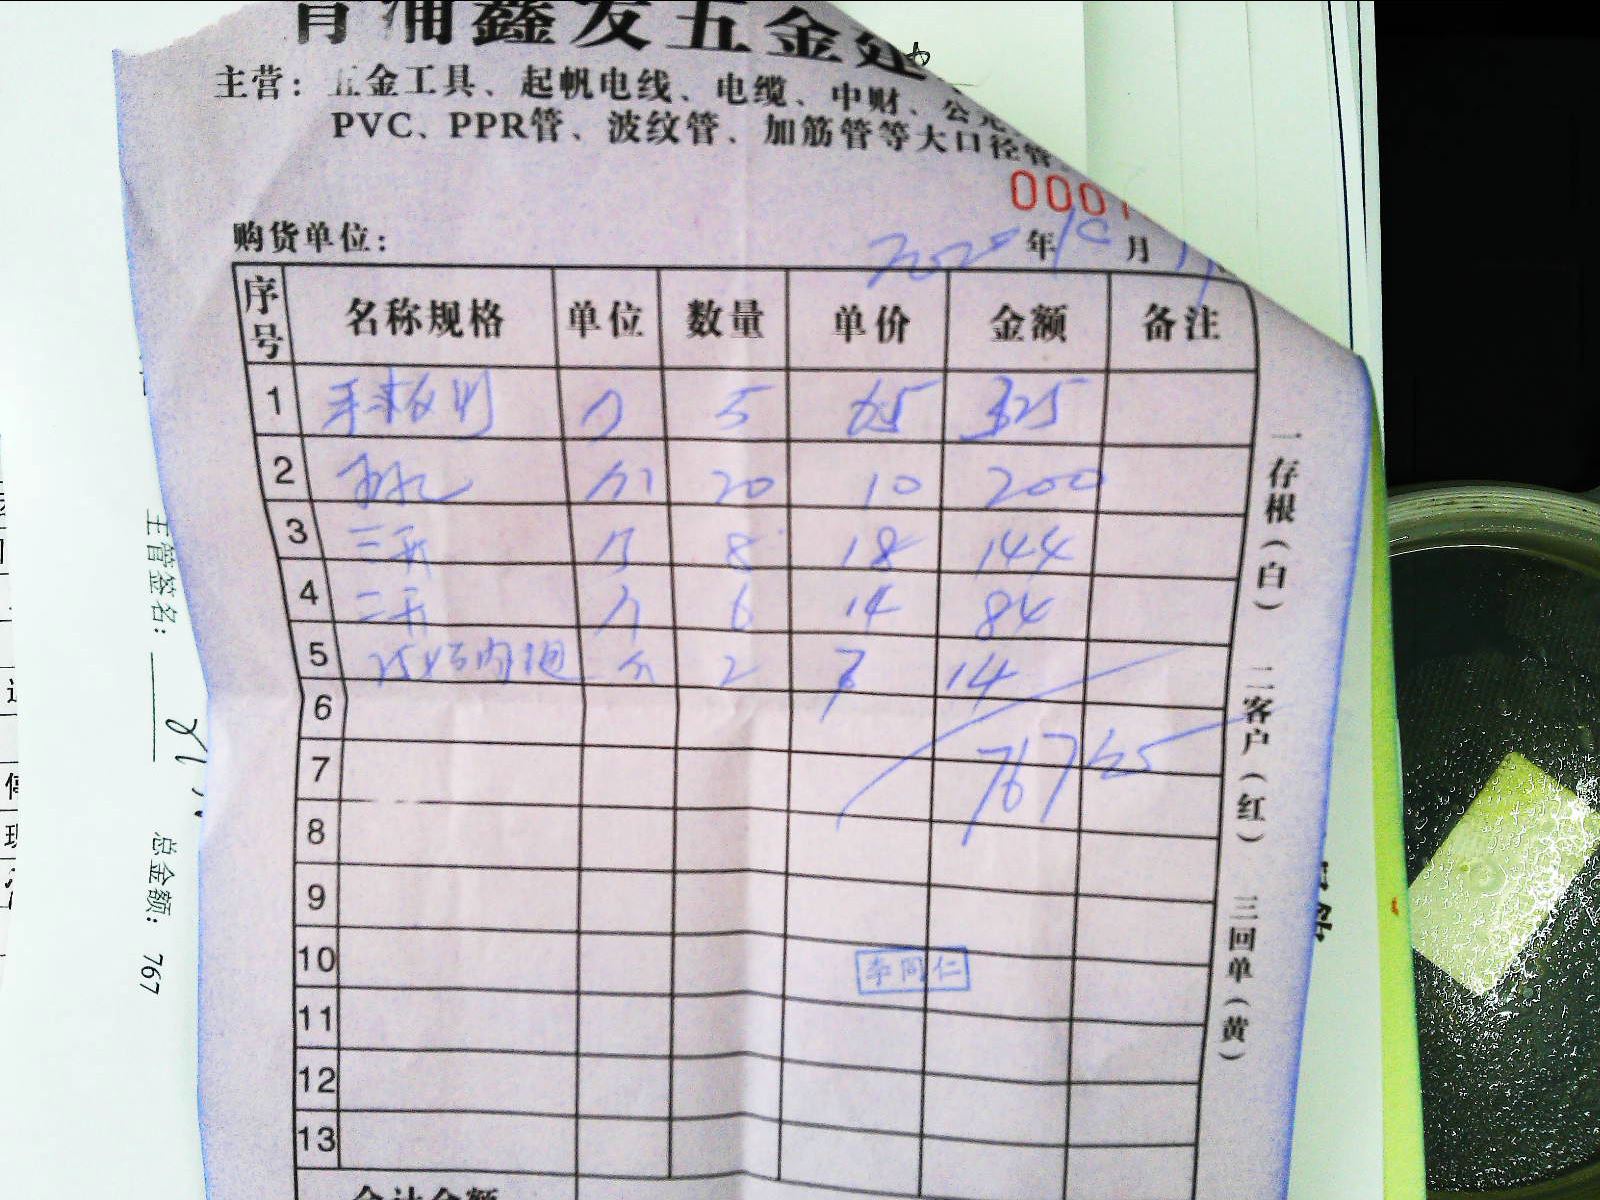 青浦鑫发五金建
主营：五金工具、起帆电线、电缆、中财、公元、
PVC、PPR管、波纹管、加筋管等大口径管
000
购货单位： 年10月
序号 名称规格 单位 数量 单价 金额 备注
1 5 65 325
2 个 20 10 200
3 三开 个 8 18 144
4 二开 个 6 14 84
5 个 2 7 14
6
767
7
8
9
10
李同仁
11
12
13
合计金额
一存根（白） 二客户（红） 三回单（黄）
主管签名： 总金额： 767